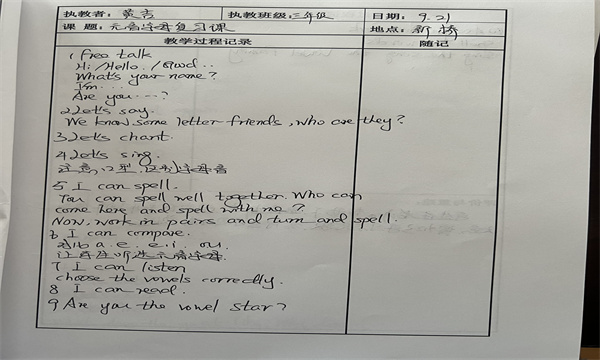 执教者: 黄吉 执教班级: 三年级 日期: 9.21
课 题: 元音字母复习课 地点: 新桥
教学过程记录 随记
1 Free talk
Hi/Hello. /Good..
What's your name?
I'm...
Are you....?
2. Let's say.
We know some letter-friends, who are they?
3. Let's chant.
4 Let's sing.
注意口型,区别字母音
5 I can spell.
You can spell well together. Who can
come here and spell with me?
Now, work in pairs and turn and spell.
6 I can compare.
对比a.e. e.i. o.u.
让学生听选元音字母.
7 I can listen
choose the vowels correctly.
8 I can read.
9 Are you the vowel star?